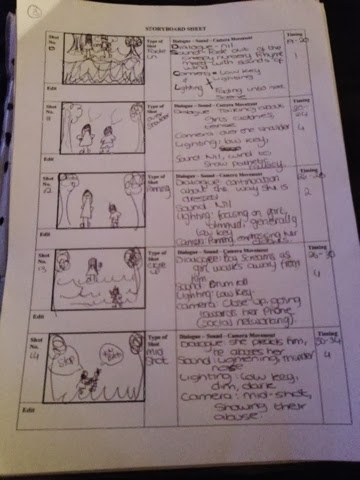 2
STORYBOARD SHEET
Shot No. 10
Type of Shot Fade in
Dialogue – Sound – Camera Movement
Dialogue - Nil
Sound - Fade out of the
creepy nursery rhyme
with sounds of
wind
Camera - Low key
Lighting
Fading into next
scene
Timing 19-20
1
Edit
Shot No. 11
Type of Shot Over Shoulder
Dialogue – Sound – Camera Movement
Dialogue - Talking about
girls clothes,
tense
Camera over the shoulder
Lighting: low key,
Sound Nil, wind to
show pathetic
fallacy.
Timing
4
Edit
Shot No. 12
Type of Shot Panning
Dialogue – Sound – Camera Movement
Dialogue continuation
about the way she is
dressed
Sound Nil
Lighting: focusing on girl,
generally
low key
Camera Panning emphasising her
clothes
Timing
2
Edit
Shot No. 13
Type of Shot Close up
Dialogue – Sound – Camera Movement
Dialogue: Boy screams as
girl walks away from
him
Sound: Drum roll
Lighting: Low key
Camera: Close up, going
towards her phone
(social networking).
Timing 26-30
4
Edit
Shot No. 14
Type of Shot Mid Shot
Stop
Dialogue – Sound – Camera Movement
Dialogue: she pleads him,
he abuses her
Sound: Lightening, murder
noise
Lighting: Low key,
dim, dark
Camera: mid-shot,
showing their
abuse.
Timing 30-34
4
Edit